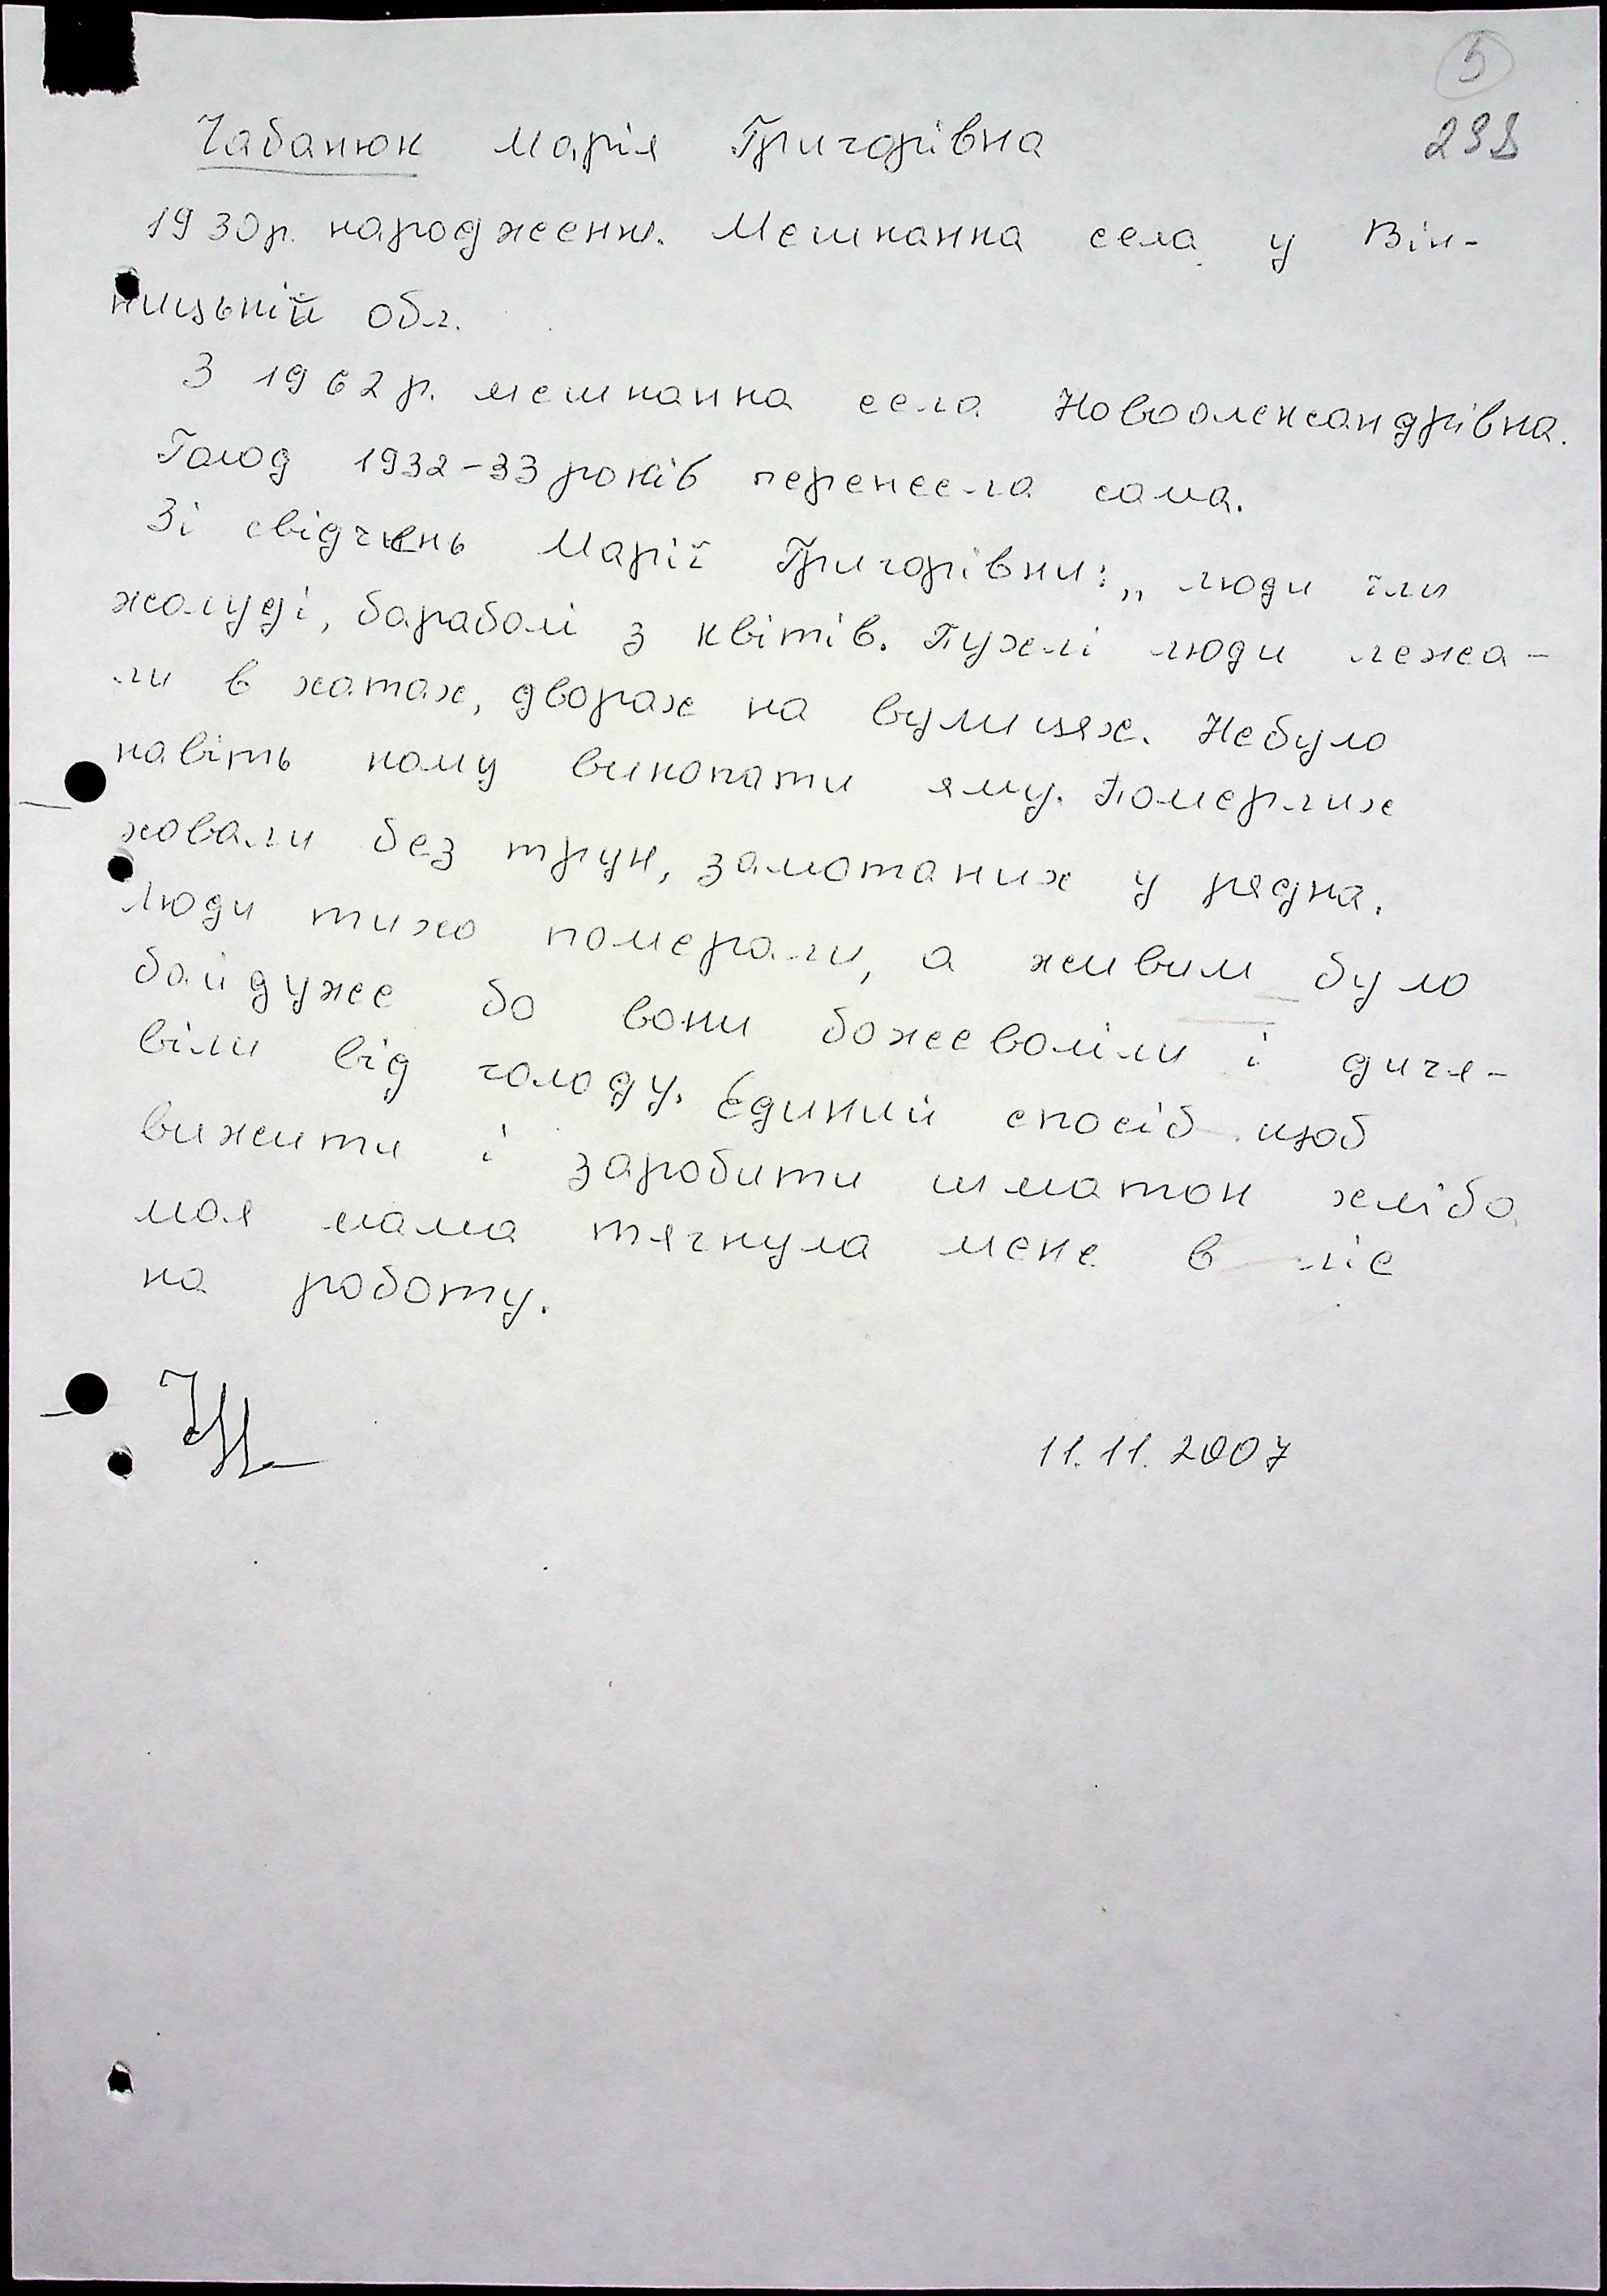 5
298
Чабанюк Марія Григорівна
1930р. народження. Мешканка села у Він-
ницькій обл.
З 1962р. мешканка села Новоолександрівка.
Голод 1932-33 років перенесла сама.
Зі свідчень Марії Григорівни: „ люди їли
жолуді, бараболі з квітів. Пухлі люди лежа-
ли в хатах, дворах на вулицях. Небуло
навіть кому викопати яму. Померлих
ховали без трун, замотаних у рядна.
Люди тихо померали, а живим було
байдуже бо вони божеволіли і дичя-
віли від голоду. Єдиний спосіб щоб
вижити і заробити шматок хліба
моя мама тягнула мене в ліс
на роботу.
11.11.2007